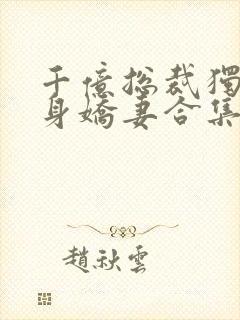 千億總裁獨
身嬌妻合集
趙秋雲